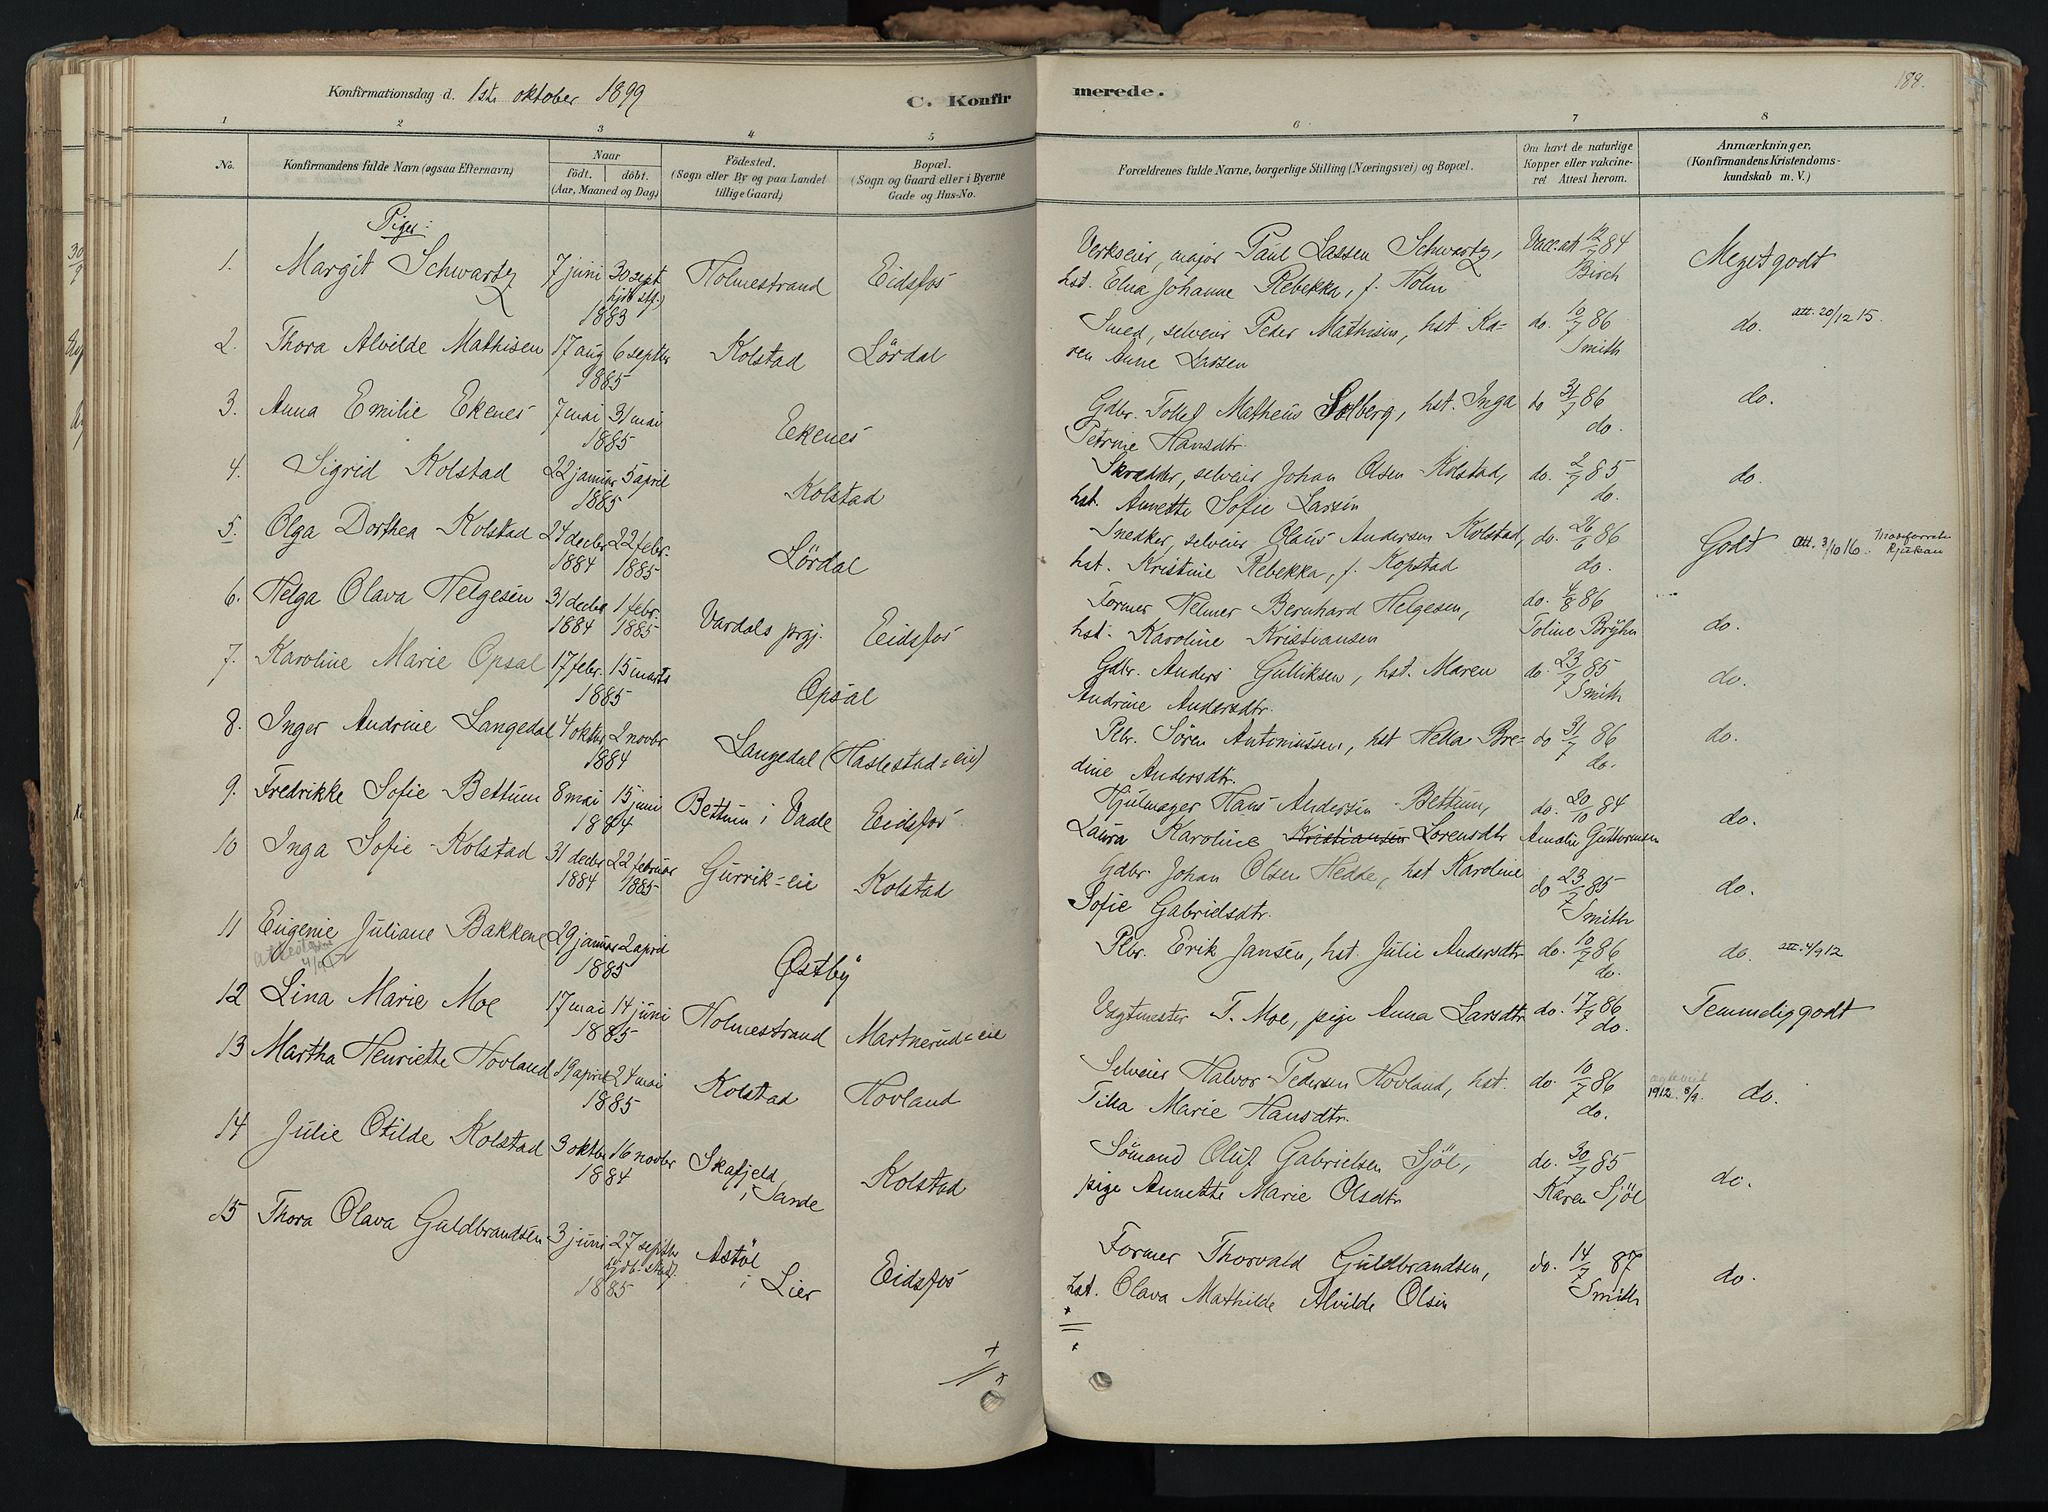 Konfirmationsdag d. 1ste oktober 1899
C. Konfir merede.
188.
1 2 3 4 5 6 7 8
No.
Konfirmandens fulde Navn (ogsaa Efternavn)
Naar
födt. döbt.
(Aar, Maaned og Dag)
Födested.
(Sogn eller By og paa Landet
tillige Gaard)
Bopæl.
(Sogn og Gaard eller i Byerne
Gade og Hus-No.
Forældrenes fulde Navne, borgerlige Stilling (Næringsvei) og Bopæl.
Om havt de naturlige
Kopper eller vakcine-
ret Attest herom.
Anmærkninger,
(Konfirmandens Kristendoms-
kundskab m. V.)
Piger:
1. Margit Schwartz 7 juni 30 sept. Holmestrand Eidsfos
1883
Verkseier, major Paul Lassen Schwartz, Vacc. att 12/7 84 Meget godt
hst. Elna Johanne Rebekka, f. Holm Birch
2. Thora Alvilde Mathisen 17 aug 6 septbr Kolstad Lördal
1885
Smed, selveier Peder Mathisen, hst. Ka- do. 10/7 86 do. att. 20/12 15.
ren Anne Larsen Smith
3. Anna Emilie Ekenes 7 mai 31 mai Ekenes
1885
Gdbr. Tollef Matheus Solberg, hst. Inga do 31/7 86 do.
Petrine Hansdtr. do.
4. Sigrid Kolstad 22 januar 5 april Kolstad
1885
Skrædder, selveier Johan Olsen Kolstad, do. 2/7 85 do.
hst. Annette Sofie Larsen do.
5. Olga Dorthea Kolstad 24 decbr 22 febr. Lördal
1884 1885
Snedker, selveier Olaus Andersen Kolstad, do. 26/6 86 Godt att. 3/10 16. Rjukan
hst. Kristine Rebekka, f. Kopstad do.
6. Helga Olava Helgesen 31 decbr 1 febr. Vardals prgj. Eidsfos
1884 1885
Former Helmer Bernhard Helgesen, do. 4/8 86 do.
hst. Karoline Kristiansen Toline Bryhn
7. Karoline Marie Opsal 17 febr. 15 marts Opsal
1885
Gdbr. Anders Gulliksen, hst. Maren do. 23/7 85 do.
Andrine Andersdtr. Smith
8. Inger Andrine Langedal 4 oktbr 2 novbr Langedal (Haslestad=eie)
1884
Plbr. Sören Antoniussen, hst Hella Bre- do 31/7 86 do.
dine Andersdtr. do.
9. Fredrikke Sofie Bettum 8 mai 15 juni Bettum i Vaale Eidsfos
1884
Hjulmager Hans Andersen Bettum, do. 20/10 84 do.
Laura Karoline Kristiansen Lorensdtr Amalie Guttormsen
10 Inga Sofie Kolstad 31 decbr 22 februar Gurrik=eie Kolstad
1884 1885
Gdbr. Johan Olsen Hedde, hst Karoline do 23/7 85 do.
Sofie Gabrielsdtr. Smith
11 Eugenie Juliane Bakkene 29 januar 2 april Østby
1885
Plbr. Erik Jansen, hst. Julie Andersdtr do. 10/7 86 do. att. 4/9 12
do.
12 Lina Marie Moe 17 mai 14 juni Holmestrand Martnerud=eie
1885
Vagtmester T. Moe, pige Anna Larsdtr do. 17/7 86 Temmelig godt
do.
13 Martha Henriette Hovland 19 april 24 mai Kolstad Hovland
1885
Selveier Halvor Pedersen Hovland, hst. do. 10/7 86 1912 8/9. do.
Tilla Marie Hansdtr. do.
14 Julie Otilde Kolstad 3 oktbr 16 novbr Skafjeld i Sande Kolstad
1884
Sömand Oluf Gabrielsen Sjöl, do. 30/7 85 do.
pige Annette Marie Olsdtr Karen Sjöl
15 Thora Olava Guldbrandsen 3 juni 27 septbr Astöl i Lier Eidsfos
1885
Former Thorvald Guldbrandsen, do. 14/7 87 do.
hst. Olava Mathilde Alvilde Olsen Smith